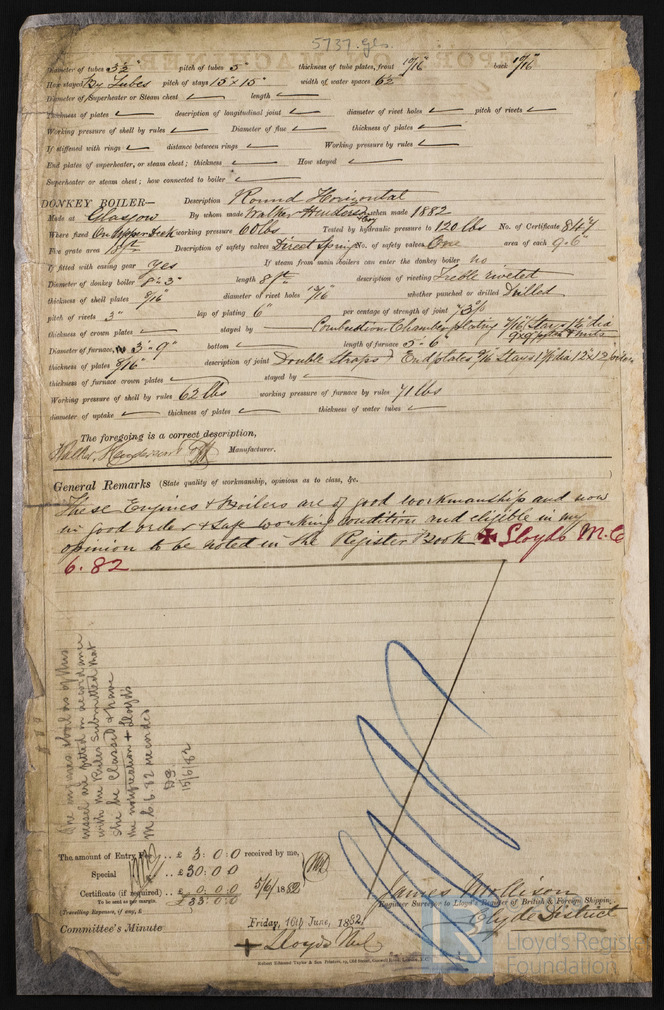 5737 gls.
Diameter of tubes 3½" pitch of tubes 5" thickness of tube plates, front 10/16" back 10/16"
How stayed By Tubes pitch of stays 15" x 15" width of water spaces 6½
Diameter of Superheater or Steam chest ✓ length ✓
Thickness of plates ✓ description of longitudinal joint ✓ diameter of rivet holes ✓ pitch of rivets ✓
Working pressure of shell by rules ✓ Diameter of flue ✓ thickness of plates ✓
If stiffened with rings ✓ distance between rings ✓ Working pressure by rules ✓
End plates of superheater, or steam chest; thickness ✓ How stayed ✓
Superheater or steam chest; how connected to boiler ✓
DONKEY BOILER— Description Round Horizontal
Made at Glasgow By whom made Walker Henderson & Coy when made 1882
Where fixed On Upper Deck working pressure 60 lbs Tested by hydraulic pressure to 120 lbs No. of Certificate 847
Fire grate area 18 ft Description of safety valves Direct Spring No. of safety valves One area of each 9.6"
If fitted with easing gear yes If steam from main boilers can enter the donkey boiler no
Diameter of donkey boiler 8'-3" length 8 ft description of riveting Treble riveted
thickness of shell plates 9/16" diameter of rivet holes 13/16" whether punched or drilled Drilled
pitch of rivets 3" lap of plating 6" per centage of strength of joint 73%
thickness of crown plates ✓ stayed by Combustion Chamber plating 7/16" Stays 1⅛" dia
9x9 pitch & nuts
Diameter of furnace, 3'-9" bottom ✓ length of furnace 5'-6"
thickness of plates 9/16" description of joint Double Straps End plates 9/16 Stays 1⅛ dia 12"x12"
thickness of furnace crown plates ✓ stayed by ✓
Working pressure of shell by rules 62 lbs working pressure of furnace by rules 71 lbs
diameter of uptake ✓ thickness of plates ✓ thickness of water tubes ✓
The foregoing is a correct description,
Walker, Henderson Manufacturer.
General Remarks (State quality of workmanship, opinions as to class, &c.
These Engines & Boilers are of good workmanship and now
in good order & safe working condition and eligible in my
opinion to be noted in the Register Book ✠ Lloyds M.C
6.82
The engines & boilers of this
vessel are fitted in accordance
with the Rules Submitted that
she be Classed & have
the notification + Lloyds
M C 6.82 recorded
15/6/82
The amount of Entry Fee .. £ 3 : 0 : 0 received by me,
Special .. £ 30 : 0 : 0
Certificate (if required) .. £ 0 : 0 : 0 5/6/1882
To be sent as per margin. £ 33 : 0 : 0
(Travelling Expenses, if any, £
James Mollison
Engineer Surveyor to Lloyd's Register of British & Foreign Shipping
Clyde District
Committee's Minute Friday, 16th June, 1882,
+ Lloyds M.C
Lloyd's Register
Foundation